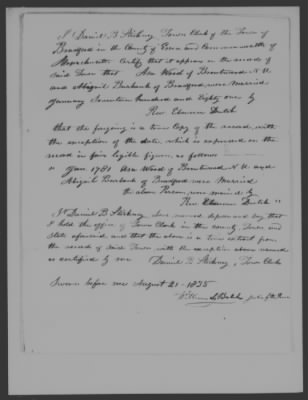 I Daniel B Stickney Town Clerk of the Town of
Bradford in the County of Essex and Commonwealth of
Massachusetts Certify that it appears in the records of
said Town that Asa Wood of Brentwood N.H.
and Abigail Burbank of Bradford were Married
January Seventeen hundred and Eighty one by
Rev Ebenezer Dutch
that the forgoing is a true Copy of the record, with
the exception of the date, which is expressed on the
record in fair legible figures, as follows
" Jan. 1781 Asa Wood of Brentwood N.H. and
Abigail Burbank of Bradford were Married.
the above Persons, were married by
Rev Ebenezer Dutch "
I Daniel B. Stickney depose and say that
I hold the office of Town Clerk in the county Town and
State aforesaid and that the above is a true extract from
the records of said Town with the exception above named
as certified by me Daniel B Stickney, Town Clerk
Sworn before me August 21 - 1838